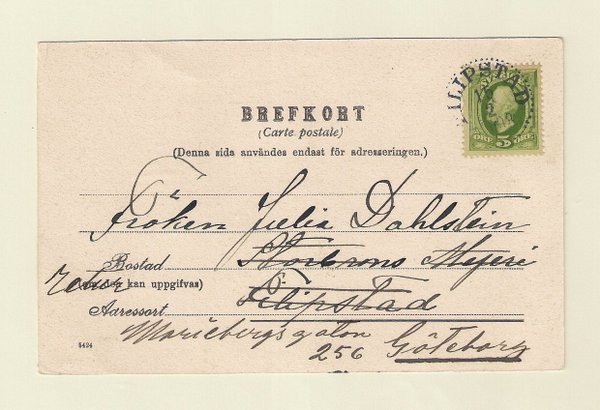 FILIPSTAD
5 ÖRE ÖRE
BREFKORT
(Carte postale)
(Denna sida användes endast för adresseringen.)
Fröken Julia Dahlstein
Bostad Storbrons Mejeri
(om den kan uppgifvas)
retur
Adressort Filipstad
Mariebergsgatan
256 Göteborg
5424